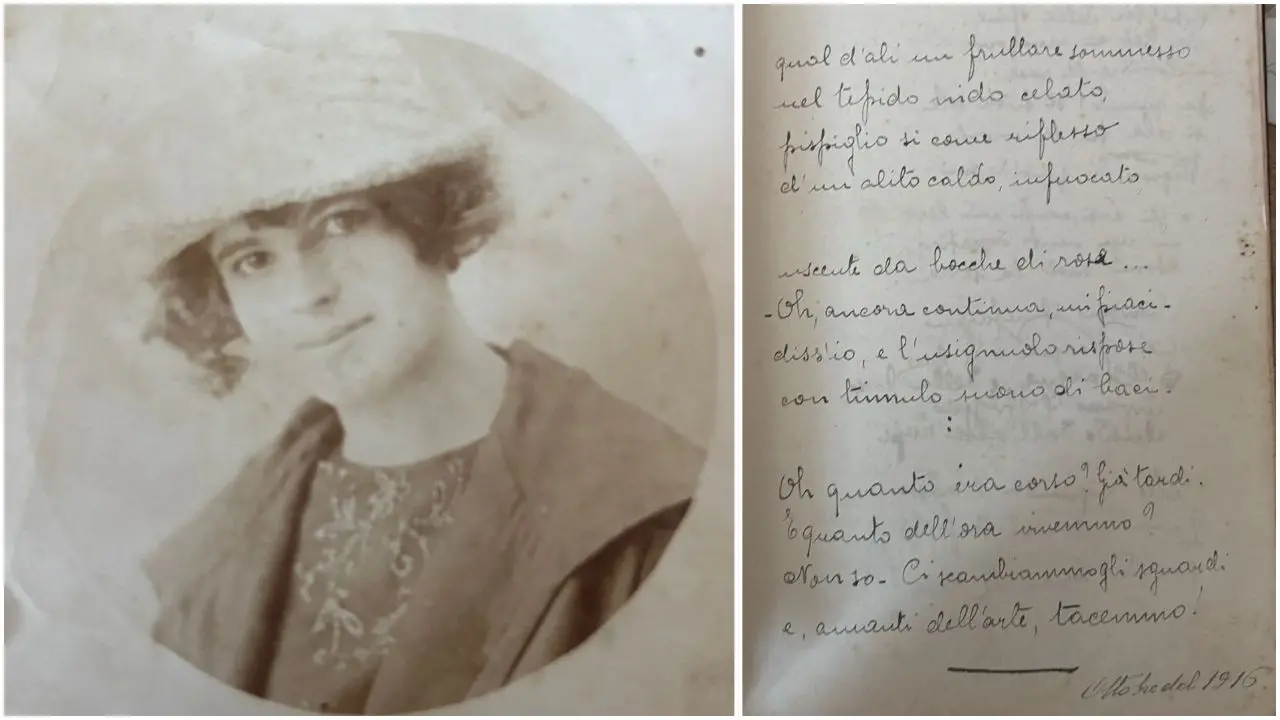 qual d'ali un frullare sommesso
nel tepido nido celato,
pispiglio si come riflesso
d'un alito caldo, infuocato
uscente da bocche di rose ...
- Oh, ancora continua, mi piaci -
diss'io, e l'usignuolo rispose
con tinnulo suono di baci.
:
Oh quanto era corso? Già tardi.
E quanto dell'ora vivemmo?
Non so - Ci scambiammo gli sguardi
e, amanti dell'arte, tacemmo!
Ottobre del 1916.